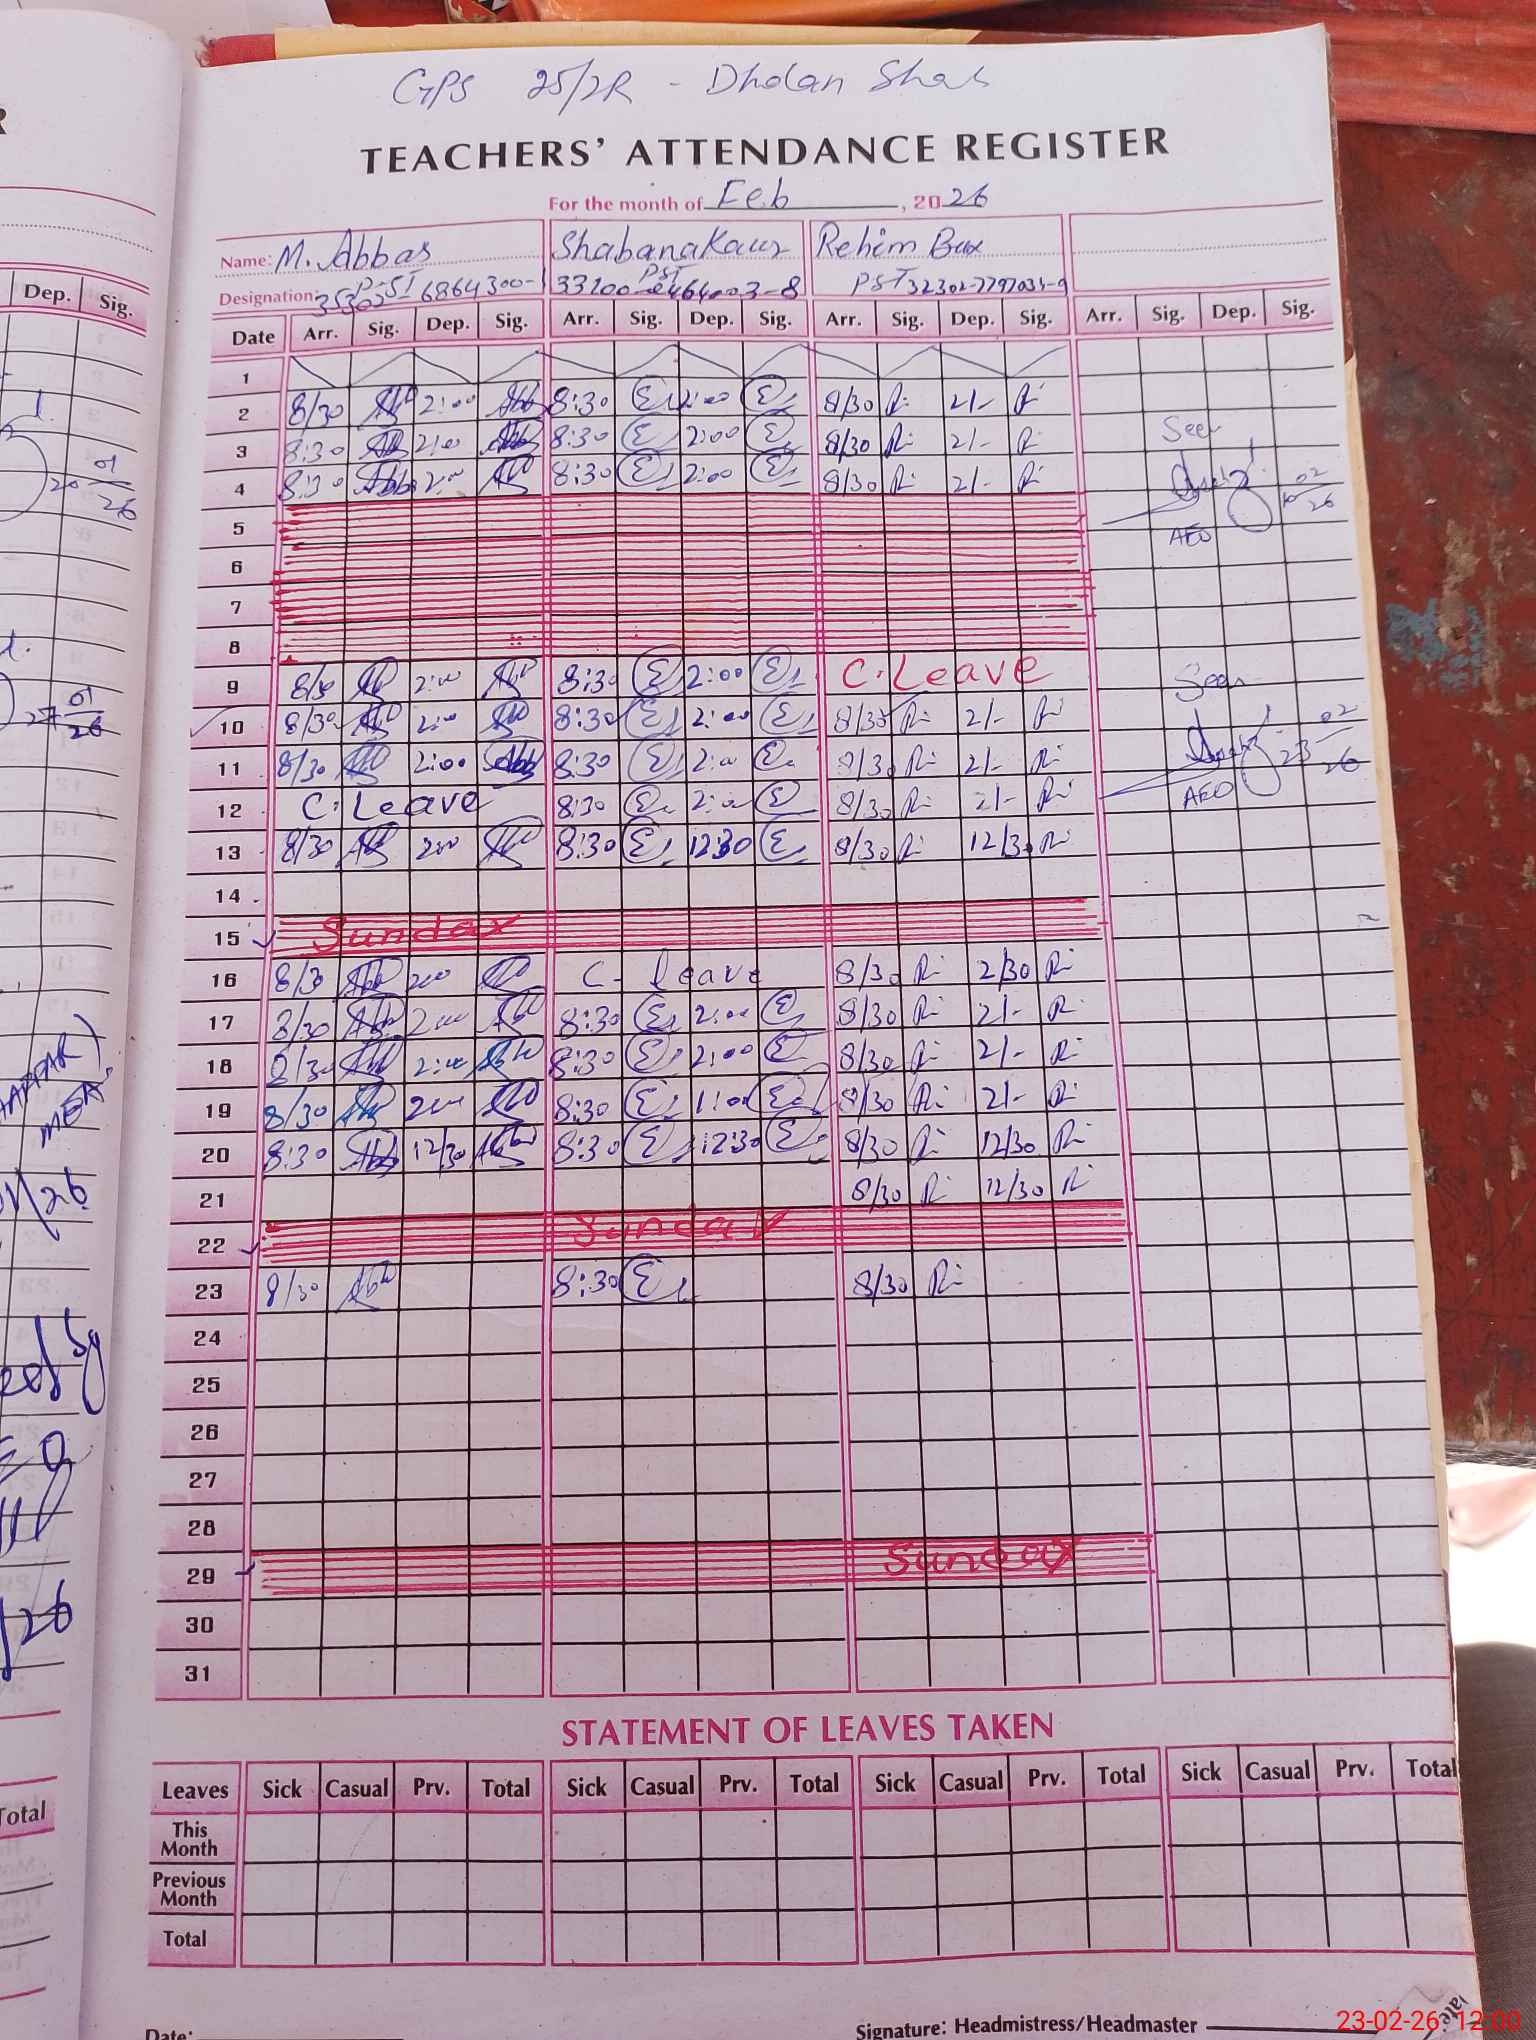 GPS 25/2R - Dholan Shah
TEACHERS' ATTENDANCE REGISTER
For the month of Feb, 2026
Name: M. Abbas Shabana Kausr Rehim Bux
Designation: PST PST PST
Dep. Sig.
Date Arr. Sig. Dep. Sig. Arr. Sig. Dep. Sig. Arr. Sig. Dep. Sig. Arr. Sig. Dep. Sig.
1
2 8/30 2:00 8:30 2:00 8/30 2/-
3 8:30 2:00 8:30 2:00 8/30 2/- Seen
4 8:30 2:00 8:30 2:00 8/30 2/- 10 02/26
5 AEO
6
7
8
9 8/30 2:00 8:30 2:00 C. Leave Seen
10 8/30 2:00 8:30 2:00 8/30 2/-
11 8/30 2:00 8:30 2:00 8/30 2/- 23 02/26
12 C. Leave 8:30 2:00 8/30 2/- AEO
13 8/30 2:00 8:30 12:30 8/30 12/30
14
15 Sunday
16 8/30 2:00 C- leave 8/30 2/30
17 8/30 2:00 8:30 2:00 8/30 2/-
18 8/30 2:00 8:30 2:00 8/30 2/-
19 8/30 2:00 8:30 1:00 8/30 2/-
20 8:30 12/30 8:30 12:30 8/30 12/30
21 8/30 12/30
22 Sunday
23 8/30 8:30 8/30
24
25
26
27
28
29 Sunday
30
31
STATEMENT OF LEAVES TAKEN
Leaves Sick Casual Prv. Total Sick Casual Prv. Total Sick Casual Prv. Total Sick Casual Prv. Total
This Month
Previous Month
Total
Total
Date:
Signature: Headmistress/Headmaster
23-02-26 12:00